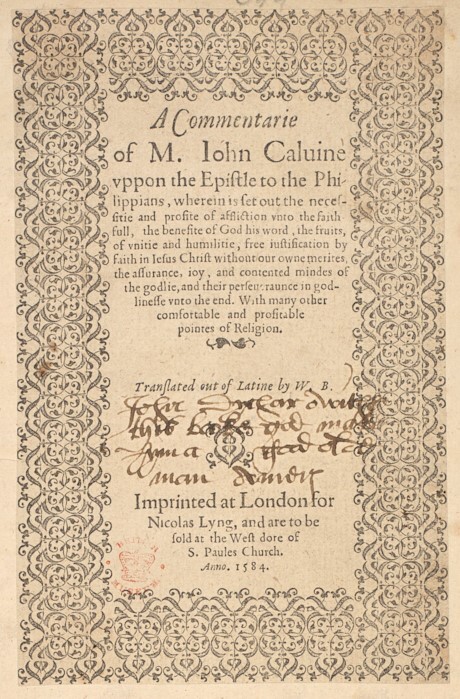 A Commentarie
of M. Iohn Caluine
vppon the Epistle to the Phi-
lippians, wherein is set out the neces-
sitie and profite of affliction vnto the faith-
full, the benefite of God his word, the fruits,
of vnitie and humilitie, free iustification by
faith in Iesus Christ without our owne merites,
the assurance, ioy, and contented mindes of
the godlie, and their perseueraunce in god-
linesse vnto the end. With many other
comfortable and profitable
pointes of Religion.
Translated out of Latine by W. B.
this boke god mak
man Amen
Imprinted at London for
Nicolas Lyng, and are to be
sold at the West dore of
S. Paules Church.
Anno. 1584.